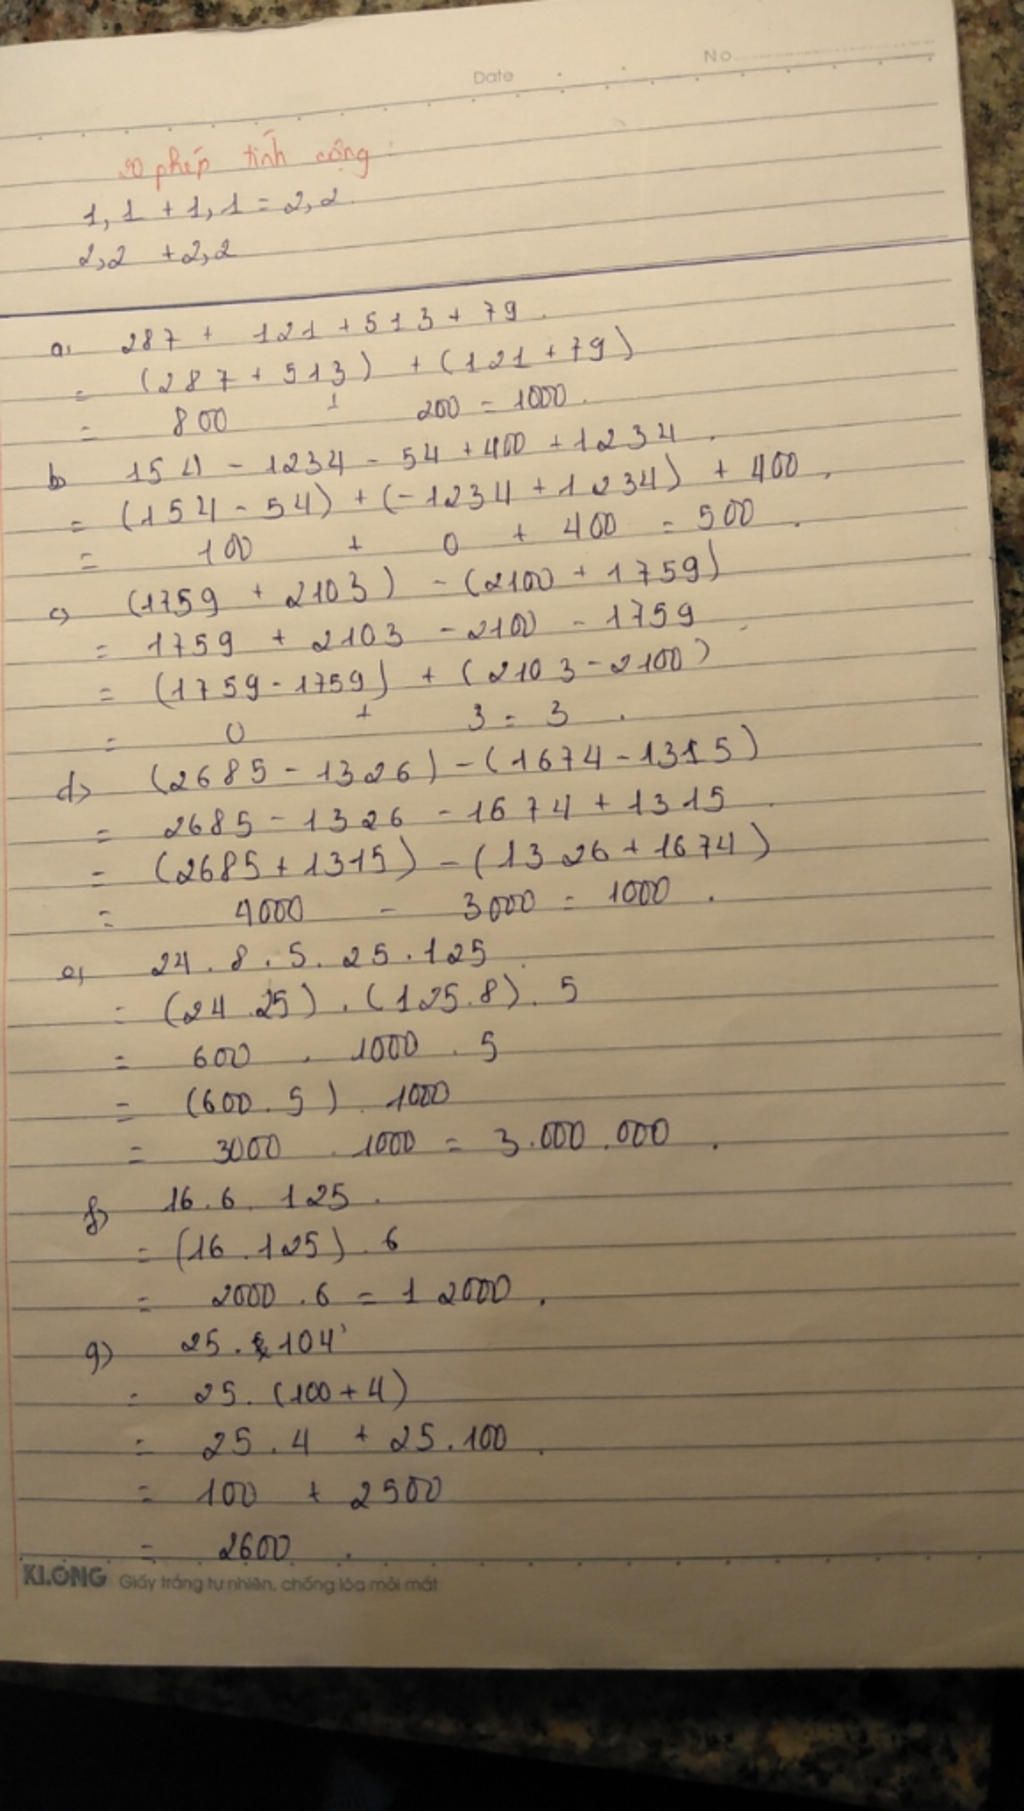 Date
No
20 phép tính cộng
1,1 + 1,1 = 2,2
2,2 + 2,2
a, 287 + 121 + 513 + 79
= (287 + 513) + (121 + 79)
= 800 + 200 = 1000.
b 154 - 1234 - 54 + 400 + 1234.
= (154 - 54) + (-1234 + 1234) + 400.
= 100 + 0 + 400 = 500.
c) (1759 + 2103) - (2100 + 1759)
= 1759 + 2103 - 2100 - 1759
= (1759 - 1759) + (2103 - 2100)
= 0 + 3 = 3.
d) (2685 - 1326) - (1674 - 1315)
= 2685 - 1326 - 1674 + 1315
= (2685 + 1315) - (1326 + 1674)
= 4000 - 3000 = 1000.
e, 24 . 8 . 5 . 25 . 125
= (24 . 25) . (125 . 8) . 5
= 600 . 1000 . 5
= (600 . 5) . 1000
= 3000 . 1000 = 3.000.000.
f) 16 . 6 . 125.
= (16 . 125) . 6
= 2000 . 6 = 12000.
g) 25 . 104
= 25 . (100 + 4)
= 25 . 4 + 25 . 100.
= 100 + 2500
= 2600.
KLONG Giấy trắng tự nhiên, chống lóa mỏi mắt